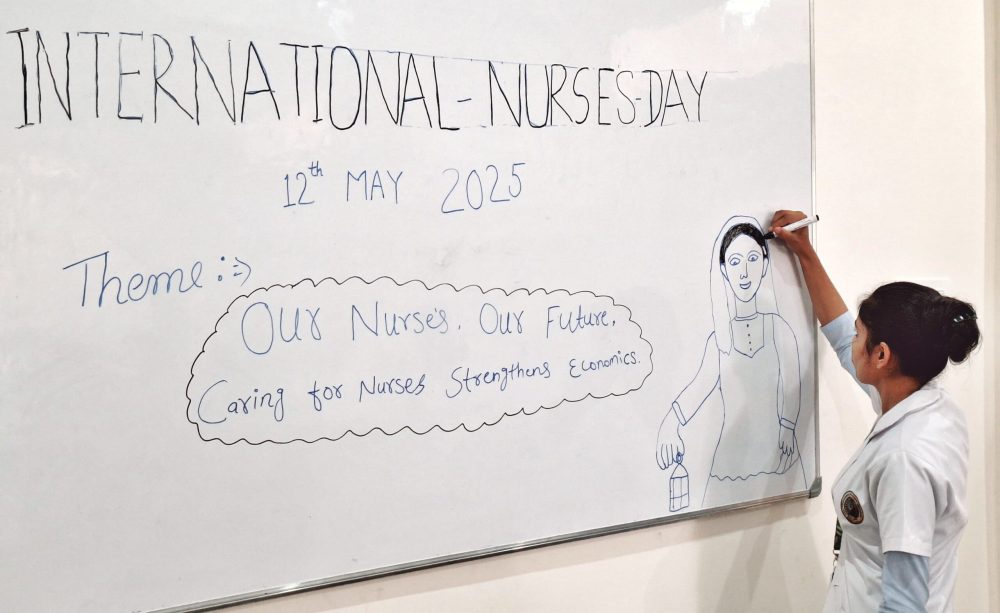 INTERNATIONAL-NURSES-DAY
12th MAY 2025
Theme :->
Our Nurse's. Our Future.
Caring for Nurses Strengthens Economics.